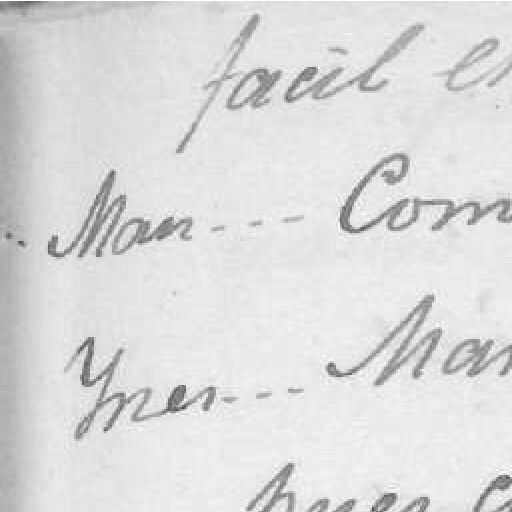 facil en
Man--- Com
Ynes--- Man
pues